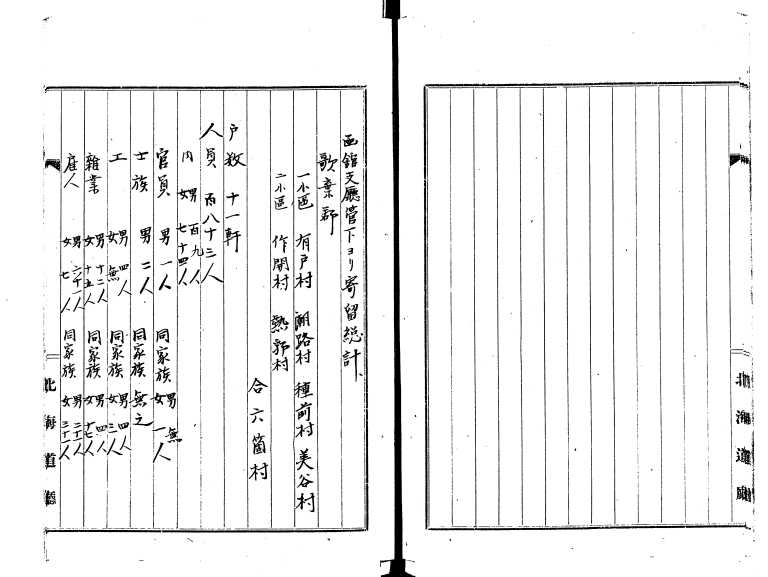 函館支廳管下ヨリ寄留總計
歌棄郡
一小區 有戸村 潮路村 種前村 美谷村
二小區 作開村 熱郛村
合六箇村
戸数 十一軒
人員 百八十三人
内 男 百九人 女 七十四人
官員 男一人 同家族 男無 女一人
士族 男二人 同家族無之
工 男四人 女無 同家族 男四人 女三人
雜業 男十二人 女十五人 同家族 男四人 女十七人
雇人 男六十一人 女七人 同家族 男二十一人 女三十一人
北海道廳
北海道廳